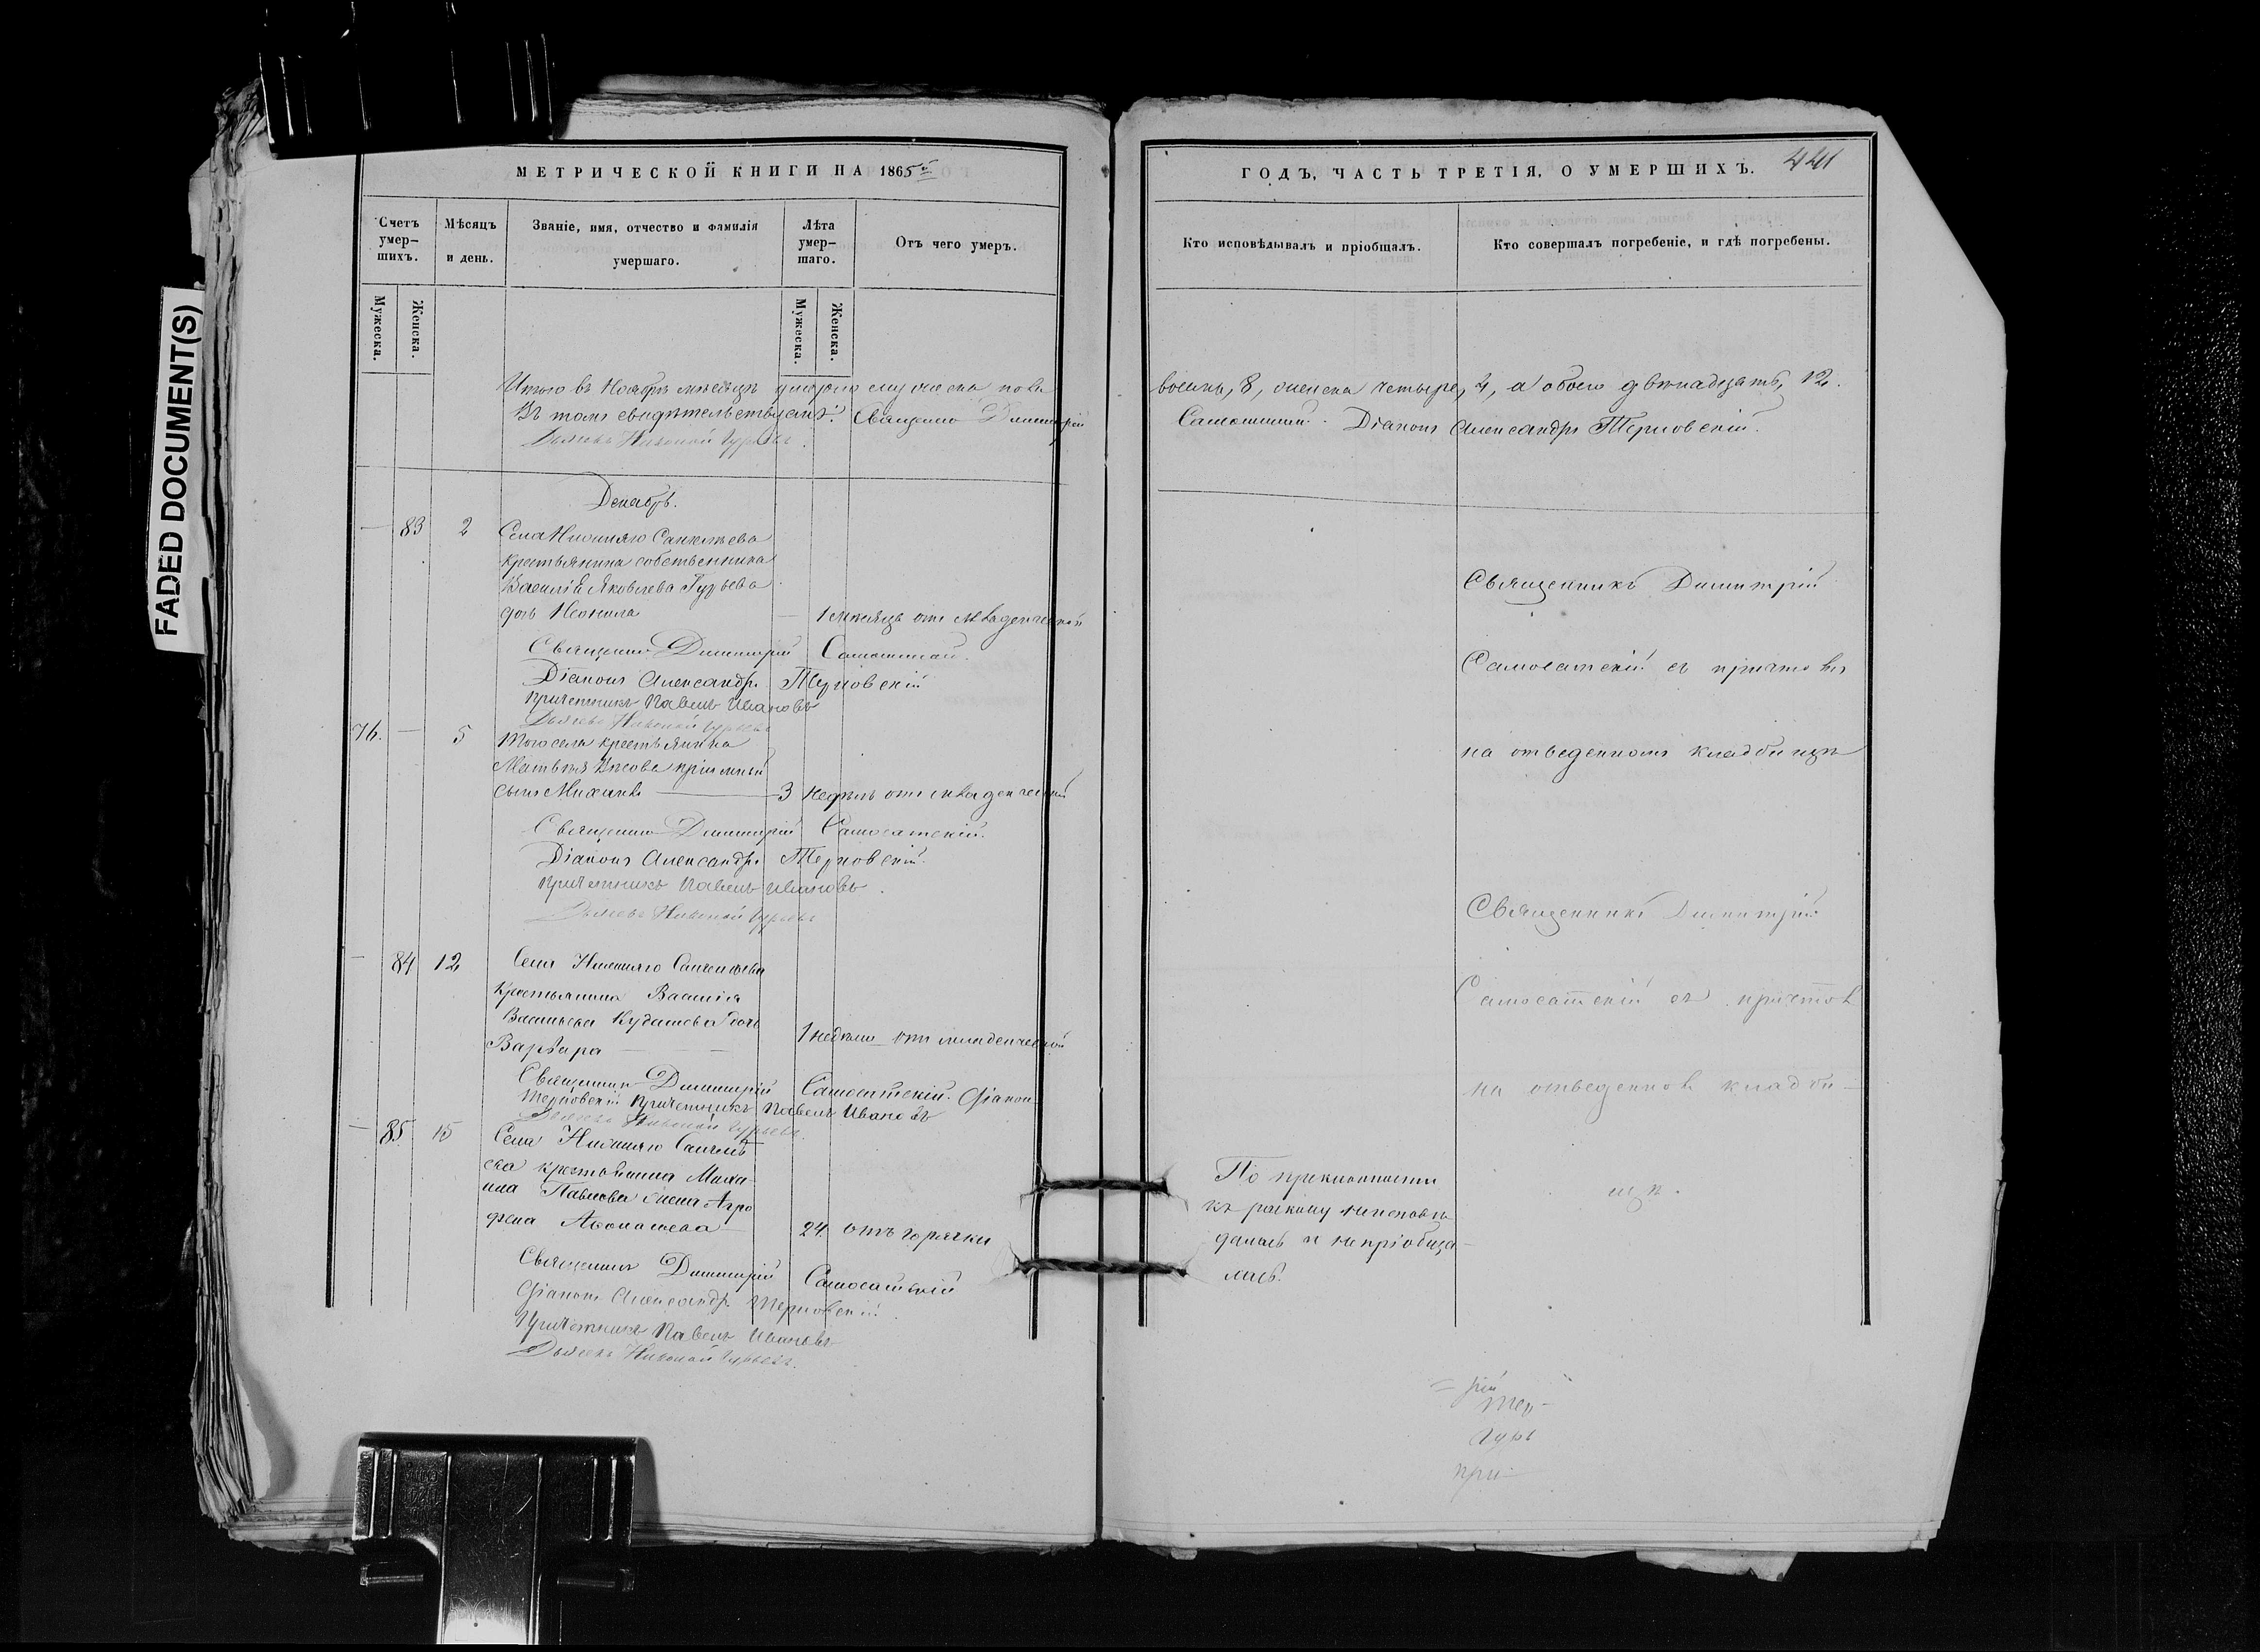 FADED DOCUMENT(S)
МЕТРИЧЕСКОЙ КНИГИ НА 1865й
Счетъ умер-
шихъ.
Мужеска.
Женска.
Мѣсяцъ
и день.
Званіе, имя, отчество и фамилія
умершаго.
Лѣта
умер-
шаго.
Мужеска.
Женска.
Отъ чего умеръ.
Итого въ Ноябрѣ мѣсяцѣ умерло мужеска пола
Въ томъ свидѣтельствуемъ: Священно Димитрій
Дьячекъ Николай Гурьевъ.
Декабрь.
— 83 2 Села Нижняго
крестьянина собственника
Василія Яковлева Гурьева
дочь Неонила — 1 мѣсяцъ отъ младенческой
Священник Димитрій
Діаконъ Александръ Терновскій
Причетникъ Павелъ Ивановъ
Дьячекъ Николай Гурьевъ
76. — 5 Того села крестьянина
Матвѣя пріемный
сынъ Михаилъ — 3 недѣль отъ младенческой
Священно Димитрій Самосатскій.
Діаконъ Александръ Терновскій.
Причетникъ Павелъ Ивановъ.
Дьячекъ Николай Гурьевъ
— 84 12 Села Нижняго
Крестьянина Василія
Васильева Кудашева дочь
Варвара — — 1 недѣли отъ младенческой
Священник Димитрій Самосатскій. Діакон
Терновскій Причетникъ Павелъ Ивановъ
Дьячекъ Николай Гурьевъ.
— 85. 15 Села Нижняго
ева крестьянина Миха
ила Павлова жена Агро
фена 24. отъ горячки
Священникъ Димитрій Самосатскій
Діаконъ Александръ Терновскій.
Причетникъ Павелъ Ивановъ
Дьячекъ Николай Гурьевъ.
ГОДЪ, ЧАСТЬ ТРЕТІЯ, О УМЕРШИХЪ. 441
Кто исповѣдывалъ и пріобщалъ.
Кто совершалъ погребеніе, и гдѣ погребены.
восемь, 8, женска четыре, 4, а обоего двѣнадцать, 12.
Діаконъ Александръ Терновскій.
Священникъ Димитрій
Самосатскій съ причтомъ
на отведенномъ кладбищѣ
Священникъ Димитрій
Самосатскій съ причтом
на отведенном кладби-
щѣ.
По
къ
далась и не пріобща-
лась.
= рій
Тер-
Гурь
при-